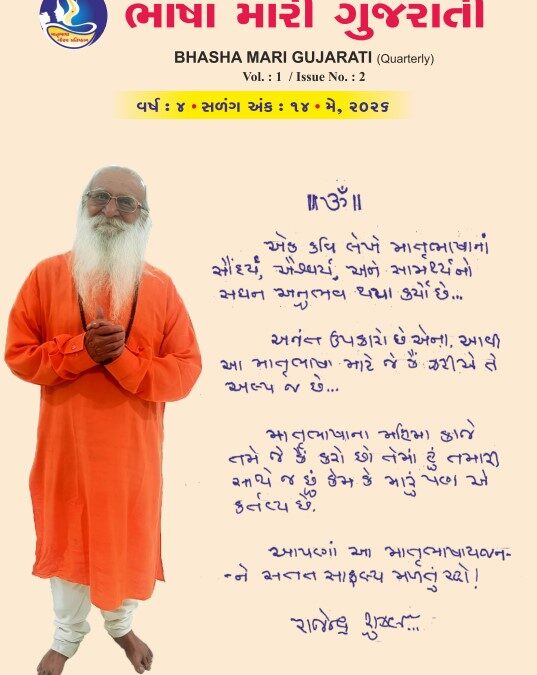 ભાષા મારી ગુજરાતી
BHASHA MARI GUJARATI (Quarterly)
Vol. : 1 / Issue No. : 2
વર્ષ : ૪ • સળંગ અંક : ૧૪ • મે, ૨૦૨૬
॥ૐ॥
એક કવિ લેખે માતૃભાષાનાં
સૌંદર્ય, ઐશ્વર્ય, અને સામર્થ્યનો
સઘન અનુભવ થયા કર્યો છે...
અનંત ઉપકારો છે એના, આવી
આ માતૃભાષા માટે જે કૈં કરીએ તે
અલ્પ જ છે...
માતૃભાષાના મહિમા કાજે
તમે જે કૈં કરો છો તેમાં હું તમારી
સાથે જ છું કેમ કે મારું પણ એ
કર્તવ્ય છે.
આપણાં આ માતૃભાષાયજન-
-ને સતત સાફલ્ય મળતું રહો!
રાજેન્દ્ર શુક્લ...